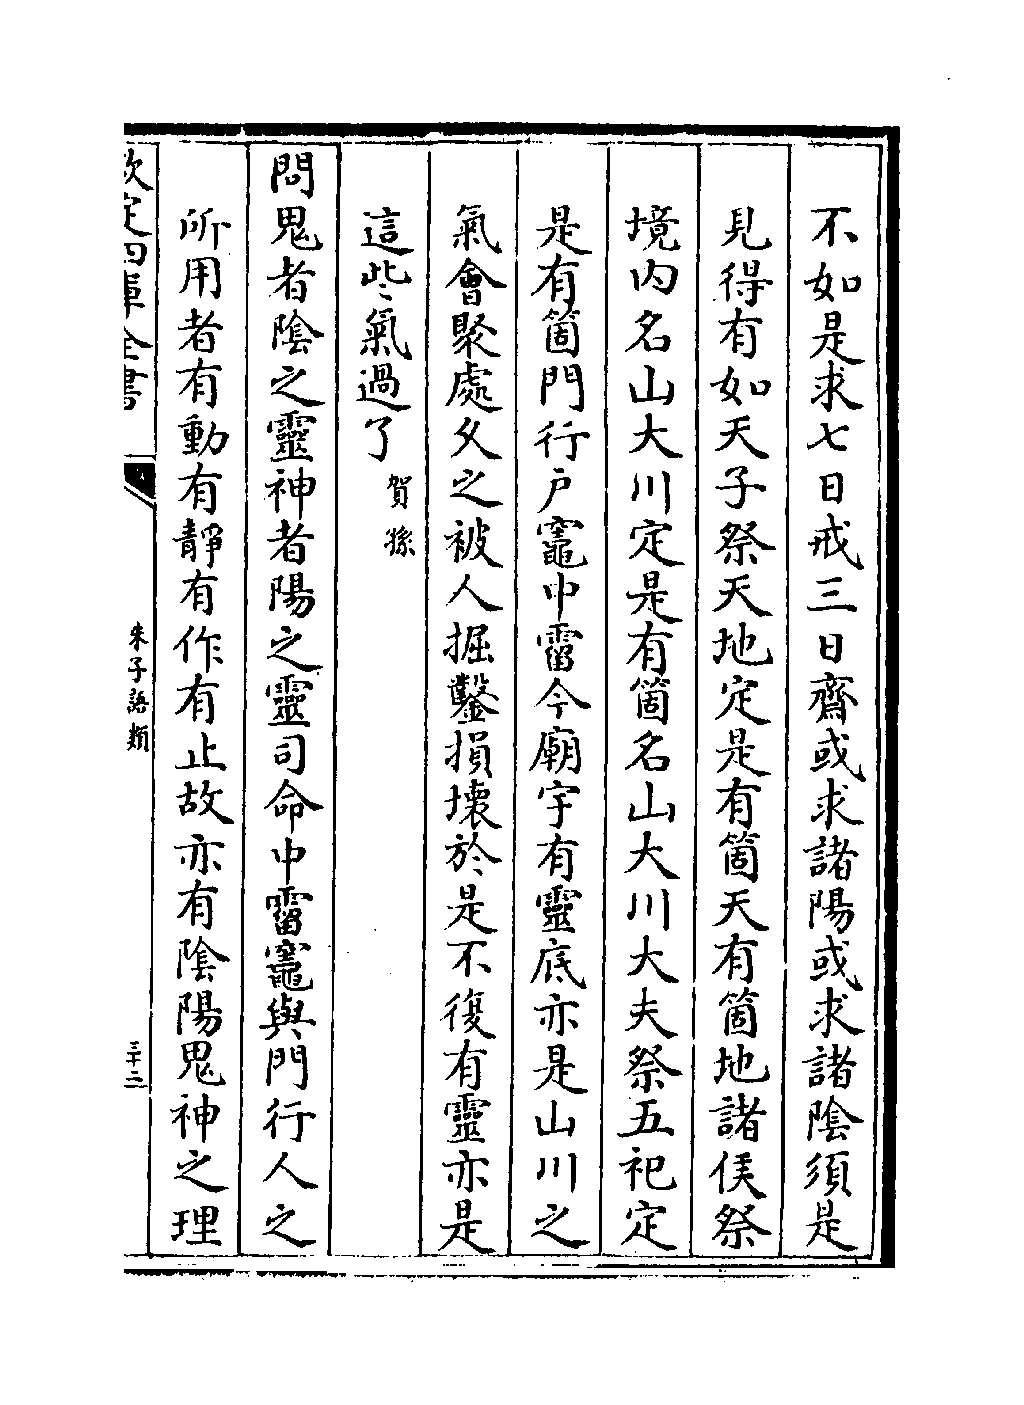 不如是求七日戒三日齋或求諸陽或求諸陰須是
見得有如天子祭天地定是有箇天有箇地諸侯祭
境内名山大川定是有箇名山大川大夫祭五祀定
是有箇門行户竈中霤今廟宇有靈底亦是山川之
氣會聚處久之被人掘鑿損壞於是不復有靈亦是
這些氣過了賀孫
問鬼者陰之靈神者陽之靈司命中霤竈與門行人之
所用者有動有靜有作有止故亦有陰陽鬼神之理
欽定四庫全書
朱子語類
三十二